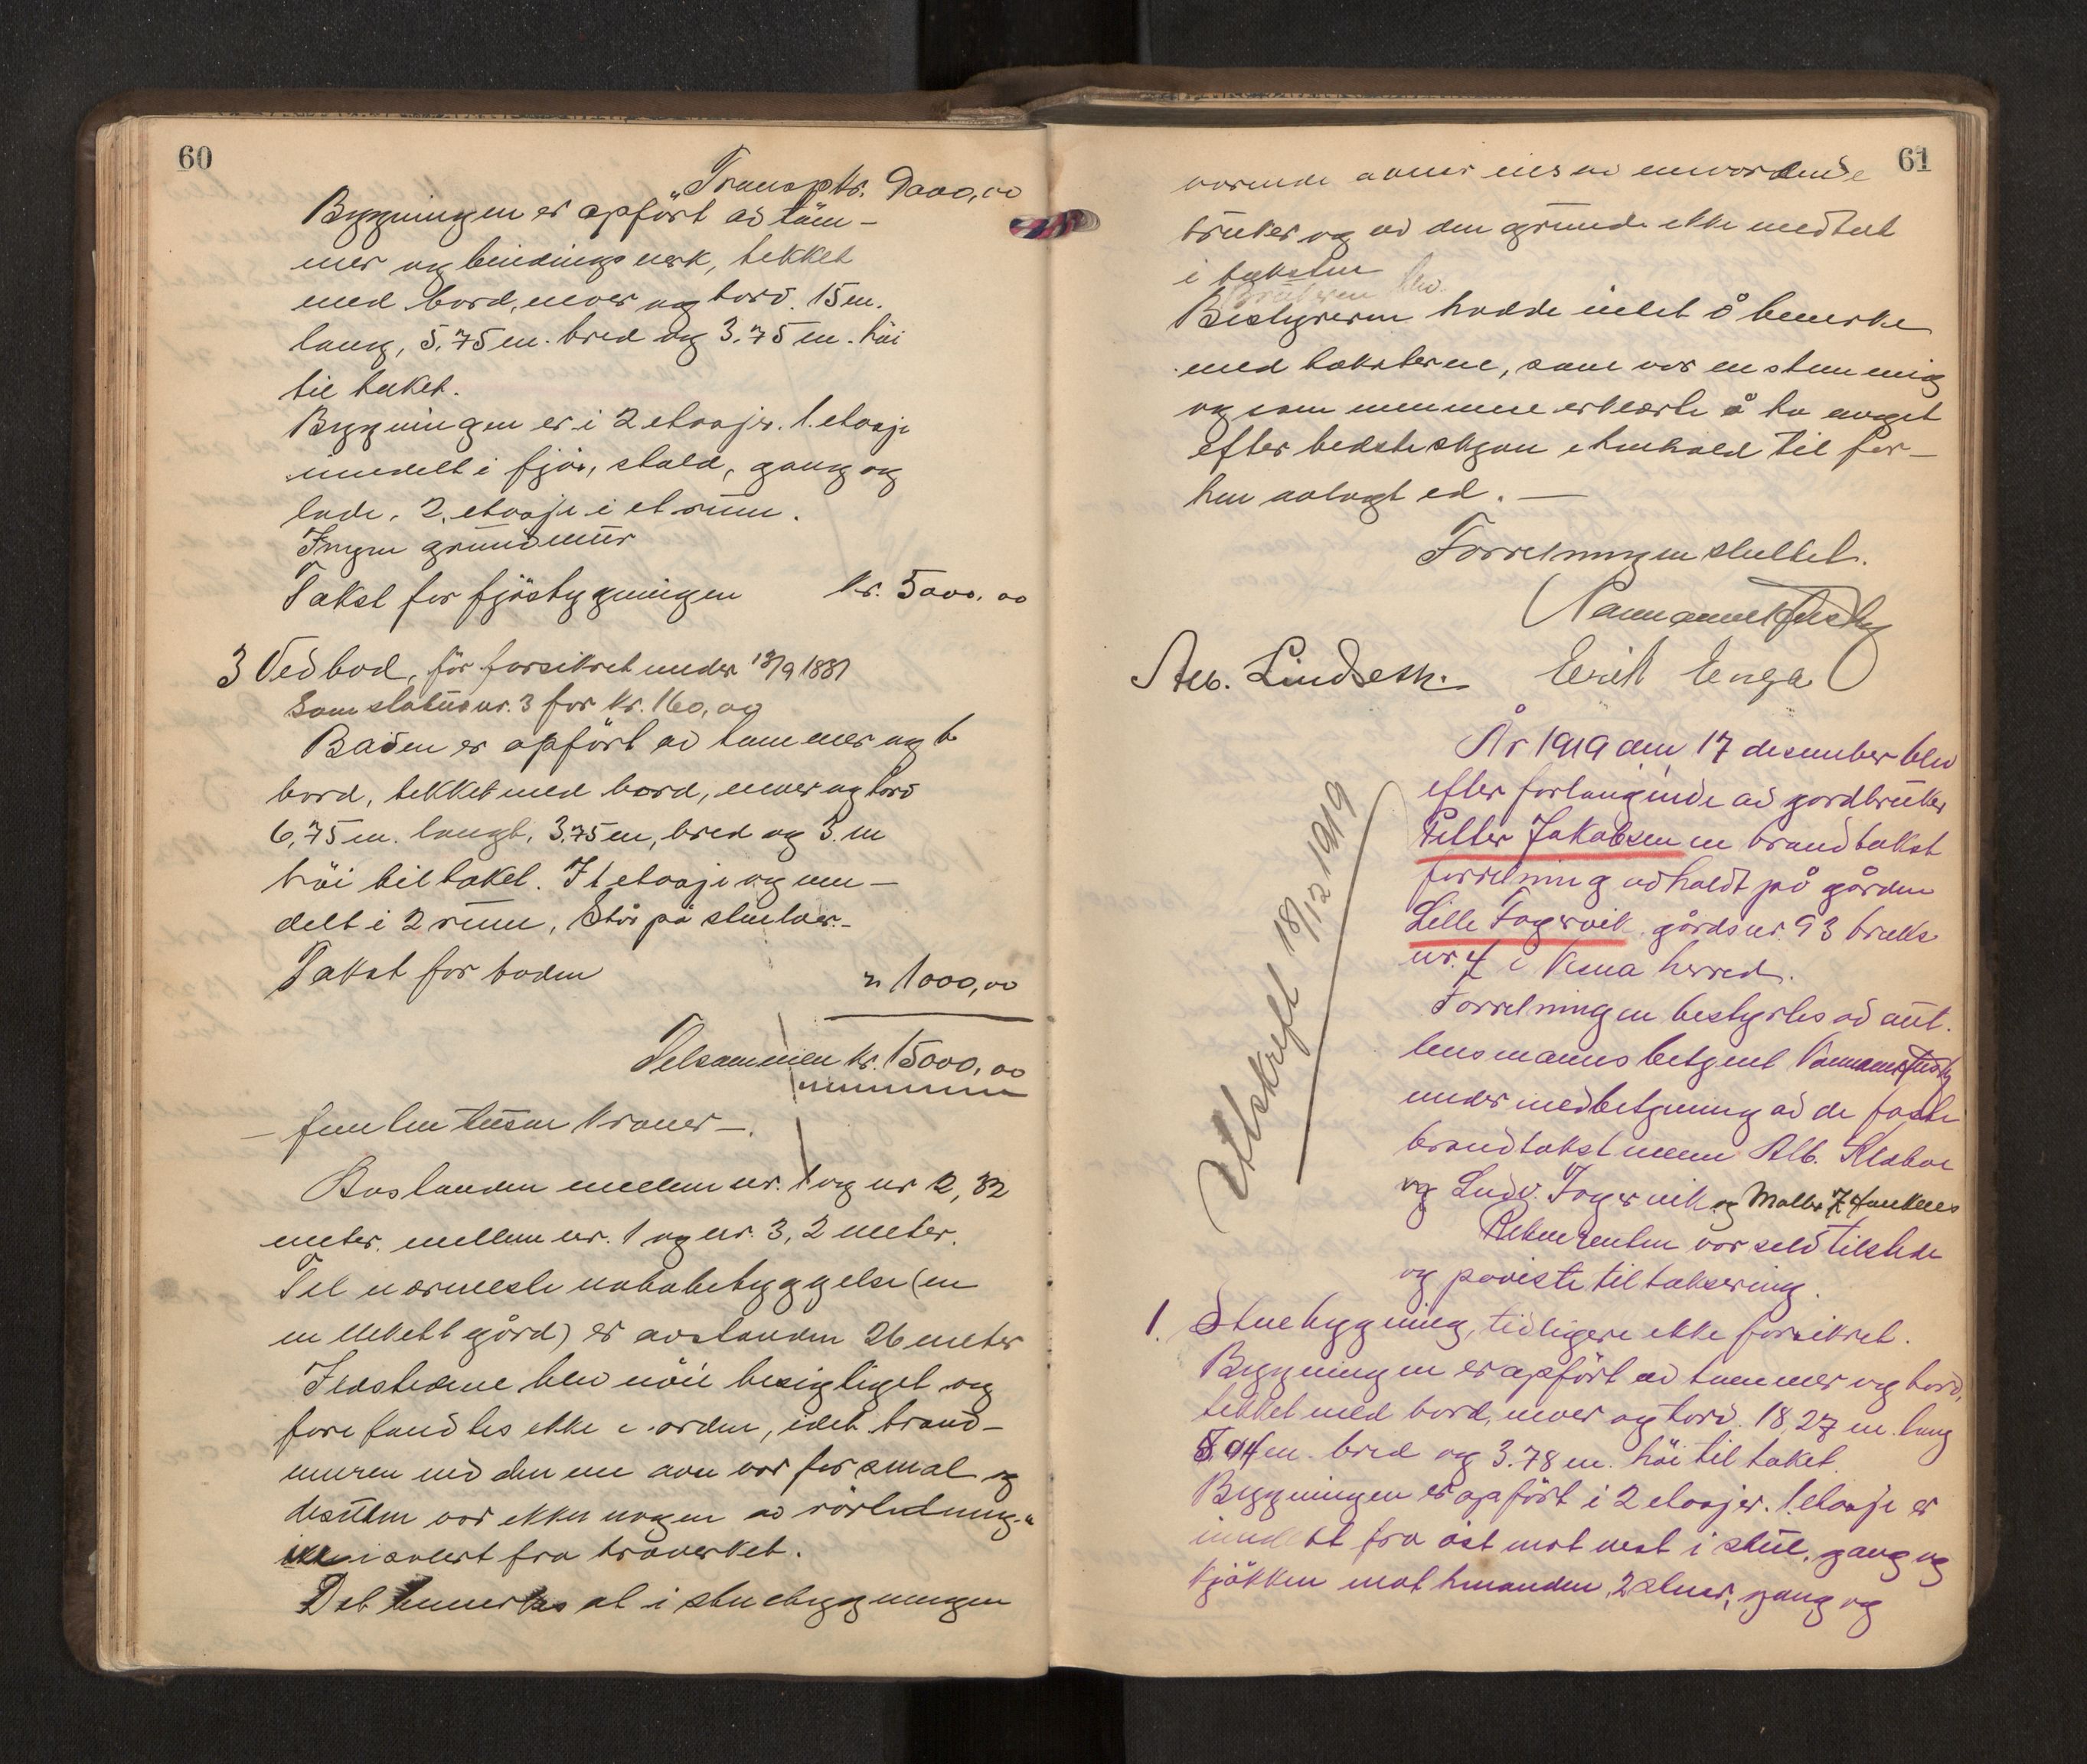 60
Transp. kr. 9000,00
Bygningen er opført av tøm-
mer og bindingsverk, tekket
med bord, never og torv. 15 m.
lang, 5.75 m. bred og 3.75 m. høi
til taket.
Bygningen er i 2 etasjer. 1. etasje
inndelt i fjøs, stald, gang og
lade. 2. etasje i et rum.
Ingen grundmur
Takst for fjøsbygningen kr. 5000.00
3 Vedbod, før forsikret under 13/9 1881
som statusnr. 3 for kr. 160,00
Boden er opført av tømmer og
bord, tekket med bord, never og torv
6,75 m. langt, 3,75 m, bred og 3. m
høi til taket. I 1 etasje og inn-
delt i 2 rum, Står på stolper.-
Takst for boden " 1000,00
Tilsammen kr. 15000,00
- femten tusen kroner -.
Avstanden mellem nr. 1 og nr 2, 32
meter. mellem nr. 1 og nr. 3, 2 meter.
Til nærmeste nabobebyggelse (en
enkelt gård) er avstanden 26 meter
Ildstedene blev nøie besigtiget og
forefandtes ikke i orden, idet brand-
muren ved den ene ovn var for smal og
desuten var ikke nogen av rørledning-
isolert fra træverket.
Det bemerkes at i stuebygningen
61
værende ovner eies av
bruker og av den grund ikke medtat
i taksten
Bestyreren hadde intet å bemerke
med taksterne, som var enstemmig
og som mennene erklærte å ha avgit
efter bedste skjøn i henhold til for-
hen avlagt ed. -
Forretningen sluttet.
Alb. Lindseth. Erik Enga
År 1919 den 17 desember blev
efter forlangende av gardbruker
Petter Jakobsen en brandtakst
forretning avholdt på gården
Lille Fagervik gårdsnr. 93 bruks
nr. 4 i Vema herred.
Forretningen bestyrtes av aut.
lensmannsbetjent
under medbetjening av de faste
brandtakstmenn Alb. Klabo
og Ludv. Fagervik og
Rekvirenten var selv tilstede
og påviste til taksering.
Utskreft 18/12 1919
1. Stuebygning, tidligere ikke forsikret.
Bygningen er opført av tømmer og bord,
tekket med bord, never og torv. 18,27 m. lang
m. bred og 3.78 m. høi til taket.
Bygningen er opført i 2 etasjer. 1. etasje er
inndelt fra øst mot vest i stue, gang og
kjøkken mot hinanden, 2 stuer, gang og